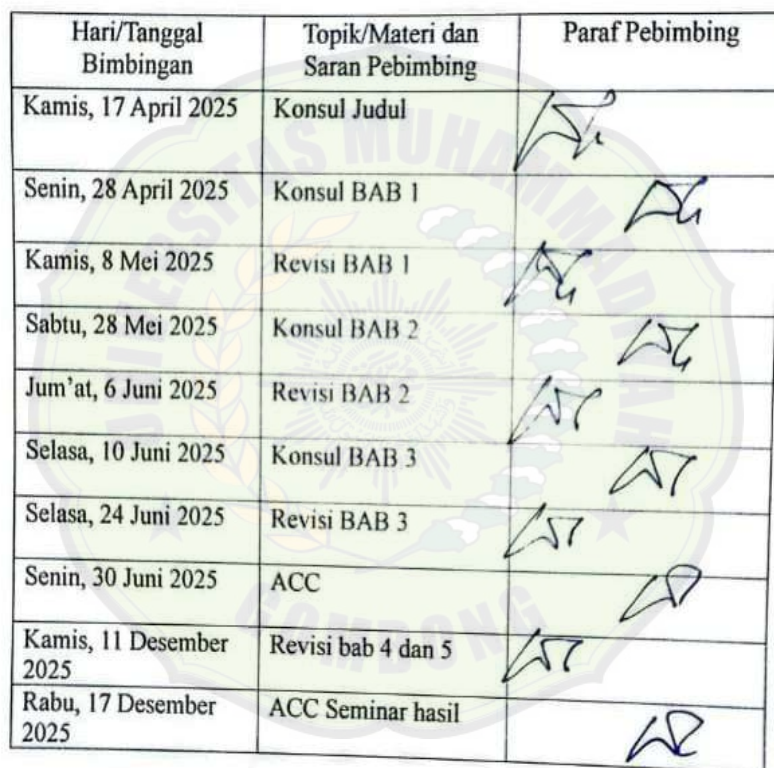 Hari/Tanggal
Bimbingan
Topik/Materi dan
Saran Pebimbing
Paraf Pebimbing
Kamis, 17 April 2025
Konsul Judul
Senin, 28 April 2025
Konsul BAB 1
Kamis, 8 Mei 2025
Revisi BAB 1
Sabtu, 28 Mei 2025
Konsul BAB 2
Jum'at, 6 Juni 2025
Revisi BAB 2
Selasa, 10 Juni 2025
Konsul BAB 3
Selasa, 24 Juni 2025
Revisi BAB 3
Senin, 30 Juni 2025
ACC
Kamis, 11 Desember
2025
Revisi bab 4 dan 5
Rabu, 17 Desember
2025
ACC Seminar hasil
UNIVERSITAS MUHAMMADIYAH
GOMBONG